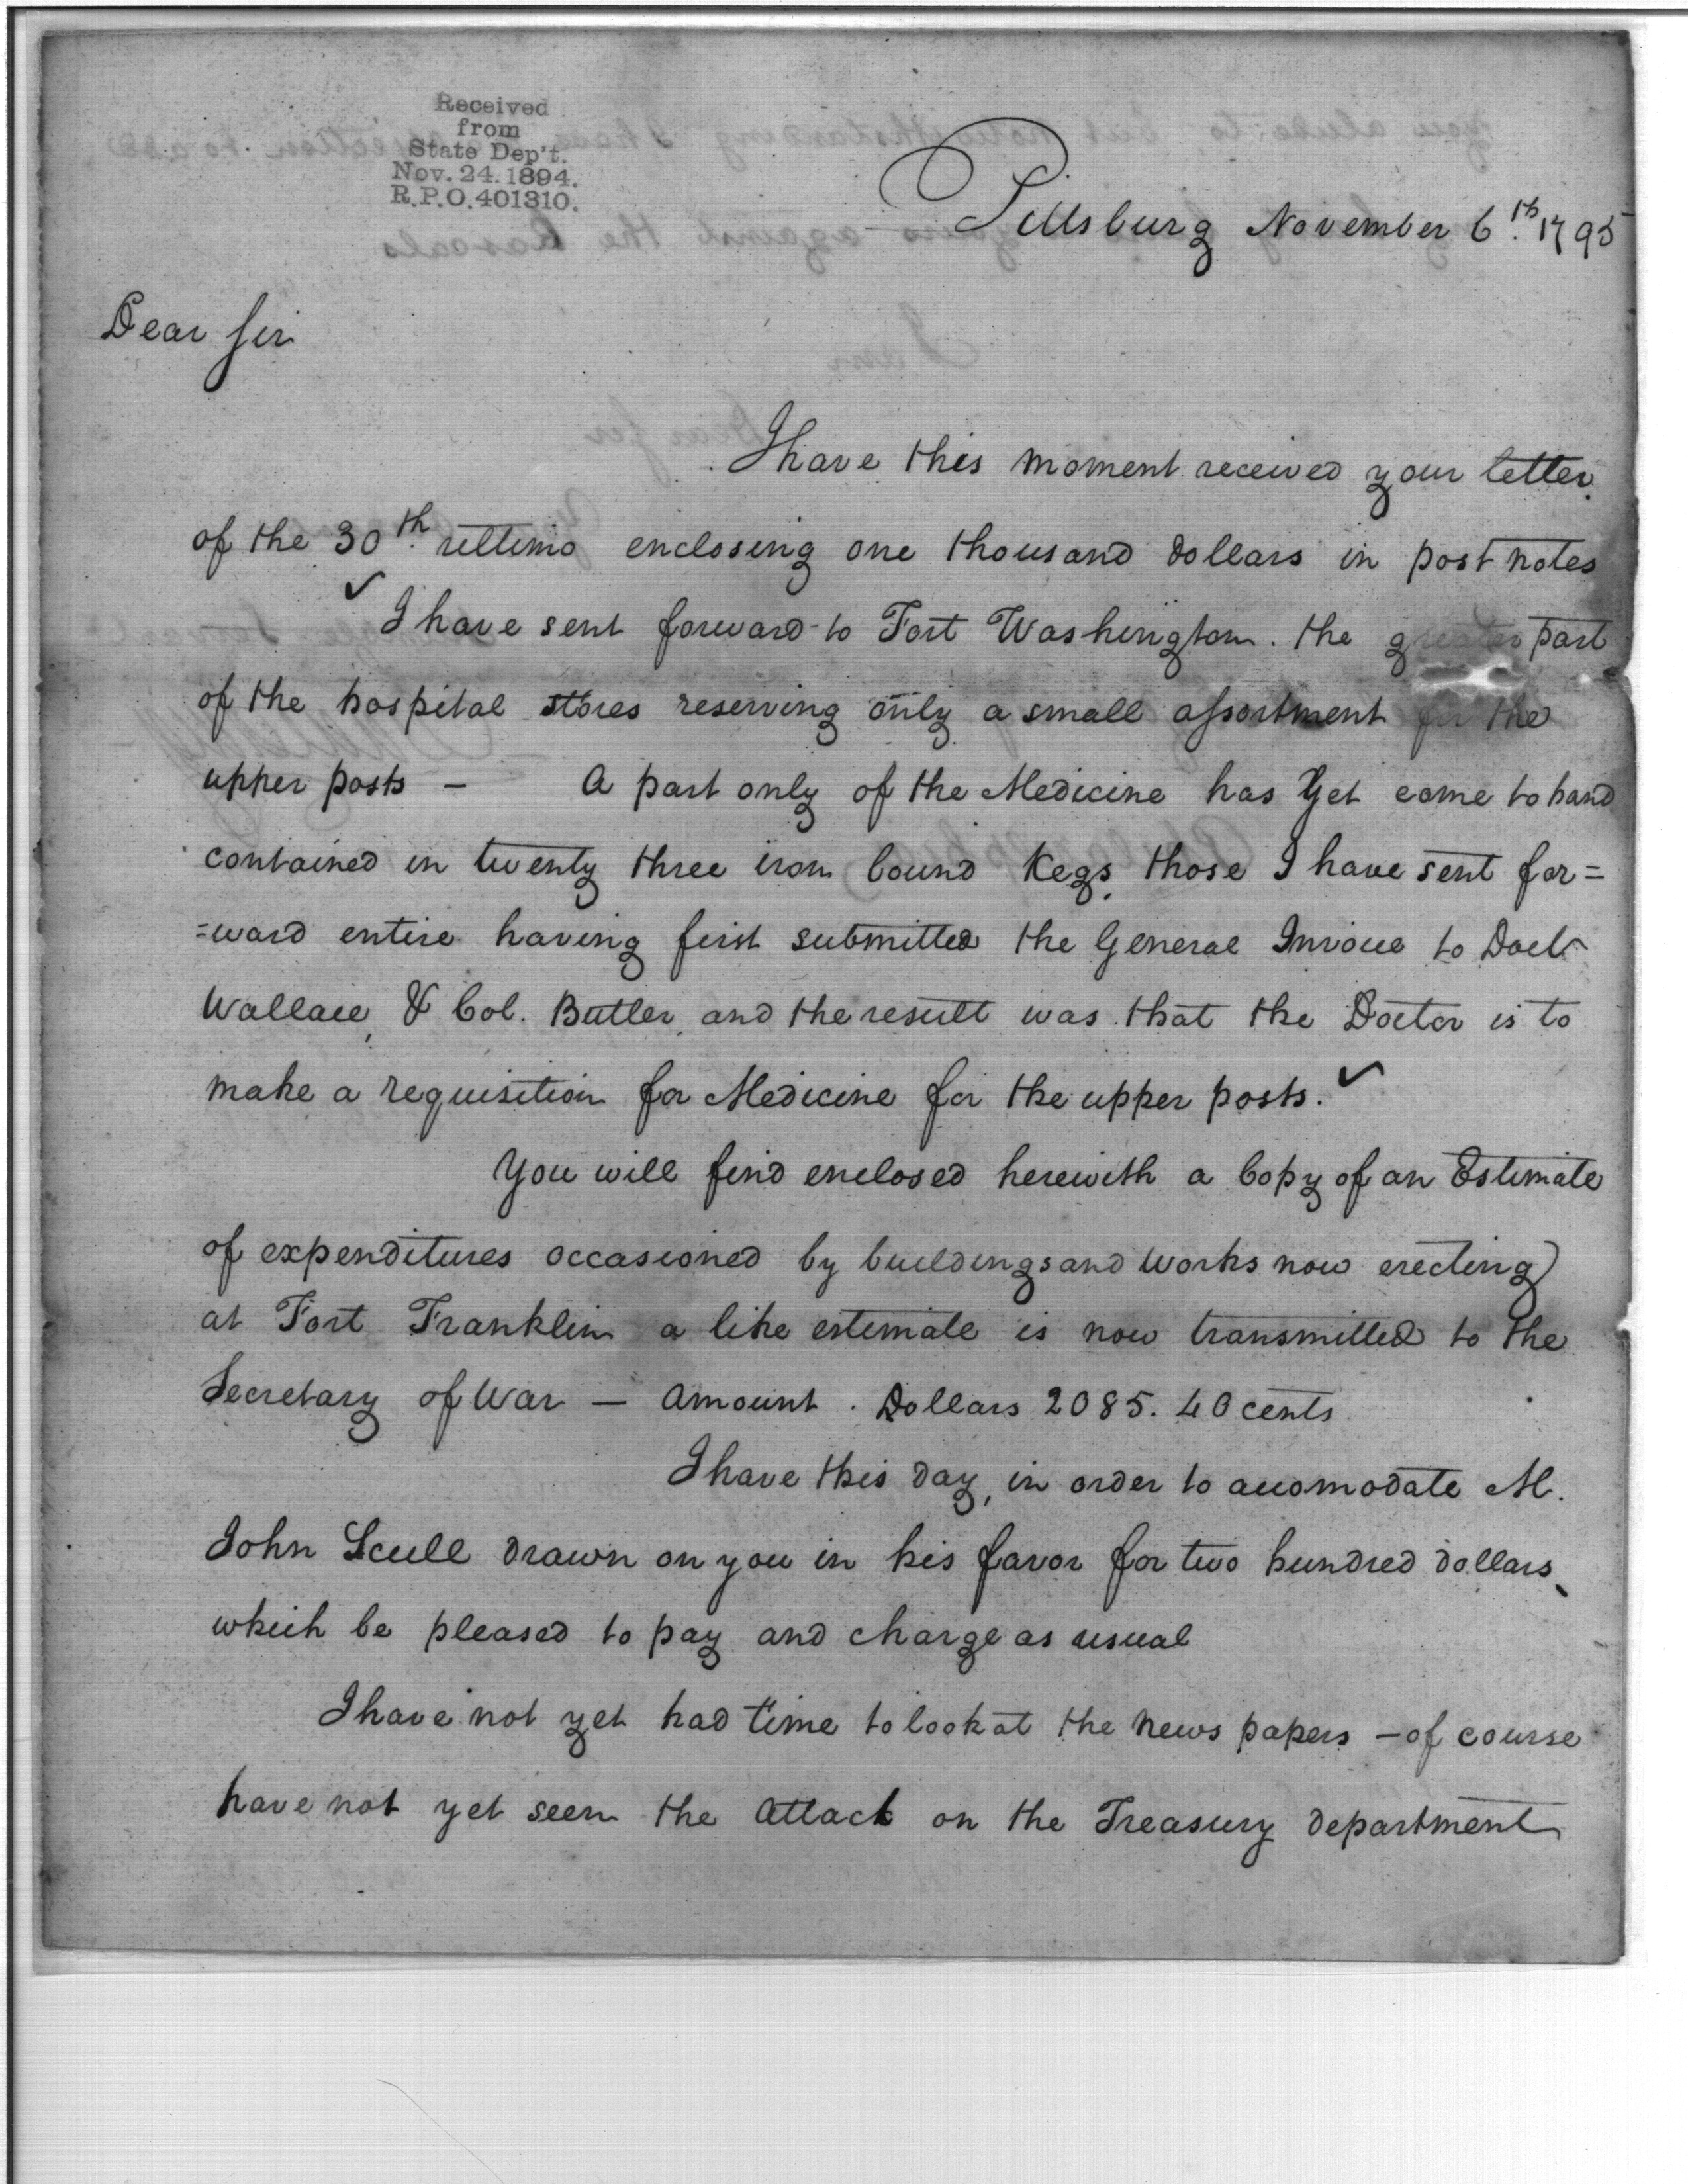 Received
from
State Dep't.
Nov. 24. 1894.
R.P.O. 401310.
Pittsburg November 6th. 1795
Dear Sir
I have this moment received your letter
of the 30th. ultimo enclosing one thousand dollars in post notes
I have sent forward to Fort Washington. the greater part
of the hospital stores reserving only a small assortment for the
upper posts - A part only of the Medicine has yet come to hand
contained in twenty three iron bound Kegs, those I have sent for=
=ward entire having first submitted the General Invoice to Doctr
Wallace, & Col. Butler, and the result was that the Doctor is to
make a requisition for Medicine for the upper posts.
You will find enclosed herewith a Copy of an Estimate
of expenditures occasioned by buildings and works now erecting
at Fort Franklin a like estimate is now transmitted to the
Secretary of War — amount. Dollars 2085. 40 cents
I have this day, in order to accomodate M.
John Scull drawn on you in his favor for two hundred dollars,
which be pleased to pay and charge as usual
I have not yet had time to look at the news papers — of course
have not yet seen the attack on the Treasury department